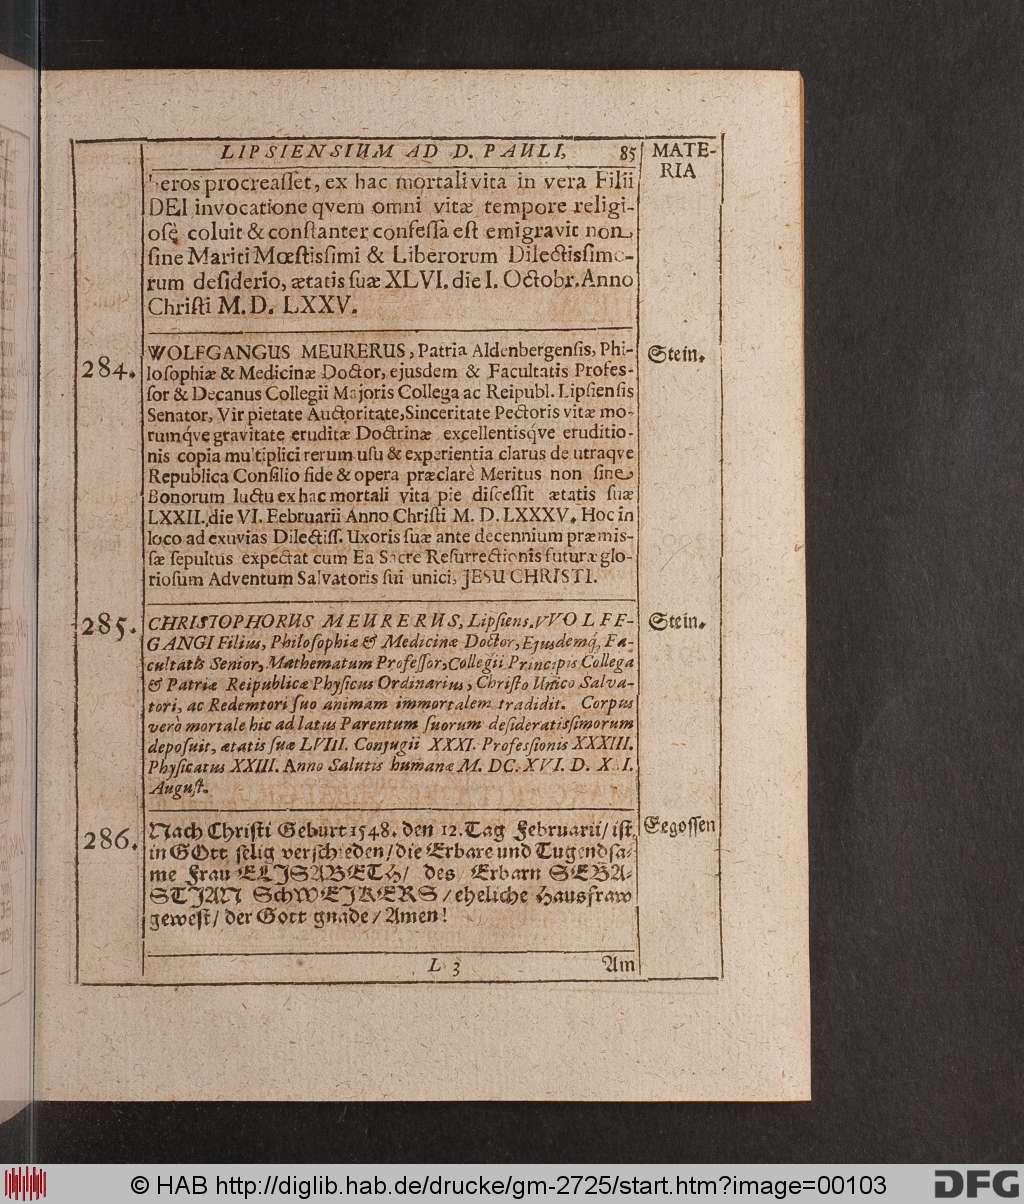 LIPSIENSIUM AD D. PAULI, 85
MATE-
RIA
beros procreaſſet, ex hac mortali vita in vera Filii
DEI invocatione qvem omni vitæ tempore religi-
oſe coluit & conſtanter confeſſa eſt emigravit non
ſine Mariti Mœſtiſſimi & Liberorum Dilectiſſimo-
rum deſiderio, ætatis ſuæ XLVI. die I. Octobr. Anno
Chriſti M. D. LXXV.
284. WOLFGANGUS MEURERUS, Patria Aldenbergenſis, Phi- Stein.
loſophiæ & Medicinæ Doctor, ejusdem & Facultatis Profeſ-
ſor & Decanus Collegii Majoris Collega ac Reipubl. Lipſienſis
Senator, Vir pietate Auctoritate, Sinceritate Pectoris vitæ mo-
rumq́ve gravitate eruditæ Doctrinæ excellentisq́ve eruditio-
nis copia multiplici rerum uſu & experientia clarus de utraqve
Republica Conſilio fide & opera præclarè Meritus non ſine
Bonorum luctu ex hac mortali vita pie diſceſſit ætatis ſuæ
LXXII. die VI. Februarii Anno Chriſti M. D. LXXXV. Hoc in
loco ad exuvias Dilectiſſ. Uxoris ſuæ ante decennium præmiſ-
ſæ ſepultus expectat cum Ea Sacre Reſurrectionis futuræ glo-
rioſum Adventum Salvatoris ſui unici, JESU CHRISTI.
285. CHRISTOPHORUS MEURERUS, Lipſienſ. VVOLFF- Stein.
GANGI Filius, Philoſophiæ & Medicinæ Doctor, Ejusdemq́, Fa-
cultatis Senior, Mathematum Profeſſor, Collegii Principis Collega
& Patriæ Reipublicæ Phyſicus Ordinarius, Chriſto Unico Salva-
tori, ac Redemtori ſuo animam immortalem tradidit. Corpus
verò mortale hic ad latus Parentum ſuorum deſideratiſſimorum
depoſuit, ætatis ſuæ LVIII. Conjugii XXXI. Profeſſionis XXXIII.
Phyſicatus XXIII. Anno Salutis humanæ M. DC. XVI. D.
Auguſt.
286. Nach Chriſti Geburt 1548. den 12. Tag Februarii/ iſt Gegoſſen
in GOtt ſelig verſchieden/ die Erbare und Tugendſa-
me Frau ELISABETH/ des Erbarn SEBA-
STIAN SchWEIKERS/ eheliche Hausfraw
geweſt/ der Gott gnade/ Amen!
L 3 Am
© HAB http://diglib.hab.de/drucke/gm-2725/start.htm?image=00103
DFG